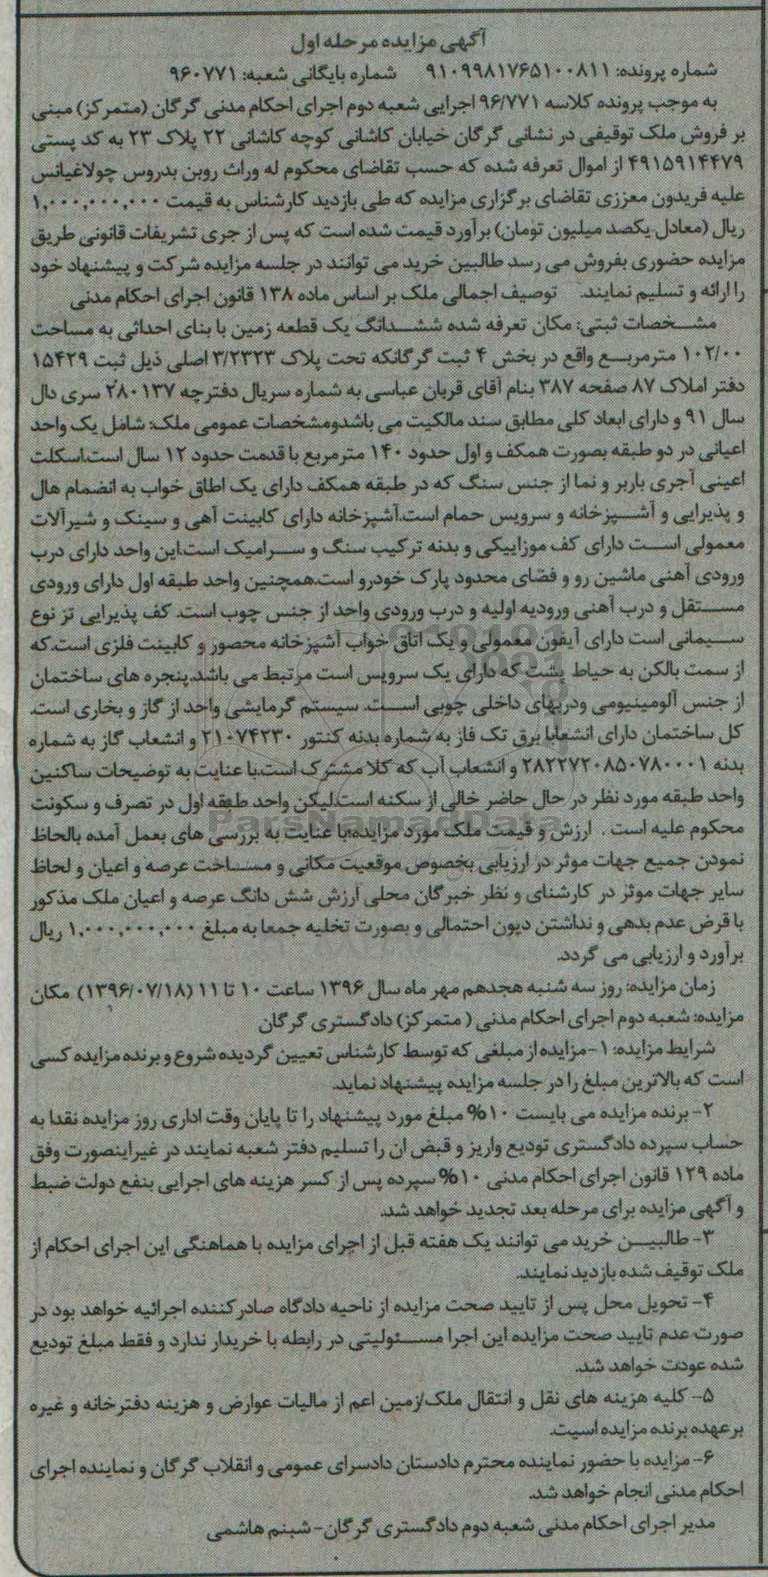 آگهی مزایده مرحله اول
شماره پرونده: ۹۱۰۹۹۸۱۷۶۵۱۰۰۸۱۱ شماره بایگانی شعبه: ۹۶۰۷۷۱
به موجب پرونده کلاسه ۹۶/۷۷۱ اجرایی شعبه دوم اجرای احکام مدنی گرگان (متمرکز) مبنی
بر فروش ملک توقیفی در نشانی گرگان خیابان کاشانی کوچه کاشانی ۲۲ پلاک ۲۳ به کد پستی
۴۹۱۵۹۱۴۴۷۹ از اموال تعرفه شده که حسب تقاضای محکوم له وراث روبن بدروس چولاغیانس
علیه فریدون معززی تقاضای برگزاری مزایده که طی بازدید کارشناس به قیمت ۱,۰۰۰,۰۰۰,۰۰۰
ریال (معادل یکصد میلیون تومان) برآورد قیمت شده است که پس از جری تشریفات قانونی طریق
مزایده حضوری بفروش می رسد طالبین خرید می توانند در جلسه مزایده شرکت و پیشنهاد خود
را ارائه و تسلیم نمایند. توصیف اجمالی ملک بر اساس ماده ۱۳۸ قانون اجرای احکام مدنی
مشخصات ثبتی: مکان تعرفه شده ششدانگ یک قطعه زمین با بنای احداثی به مساحت
۱۰۲/۰۰ مترمربع واقع در بخش ۴ ثبت گرگانکه تحت پلاک ۳/۲۳۲۳ اصلی ذیل ثبت ۱۵۴۲۹
دفتر املاک ۸۷ صفحه ۳۸۷ بنام آقای قربان عباسی به شماره سریال دفترچه ۲۸۰۱۳۷ سری دال
سال ۹۱ و دارای ابعاد کلی مطابق سند مالکیت می باشدومشخصات عمومی ملک: شامل یک واحد
اعیانی در دو طبقه بصورت همکف و اول حدود ۱۴۰ مترمربع با قدمت حدود ۱۲ سال است.اسکلت
اعینی آجری باربر و نما از جنس سنگ که در طبقه همکف دارای یک اطاق خواب به انضمام هال
و پذیرایی و آشپزخانه و سرویس حمام است.آشپزخانه دارای کابینت آهی و سینک و شیرآلات
معمولی است دارای کف موزاییکی و بدنه ترکیب سنگ و سرامیک است.این واحد دارای درب
ورودی آهنی ماشین رو و فضای محدود پارک خودرو است.همچنین واحد طبقه اول دارای ورودی
مستقل و درب آهنی ورودیه اولیه و درب ورودی واحد از جنس چوب است. کف پذیرایی تز نوع
سیمانی است دارای آیفون معمولی و یک اتاق خواب آشپزخانه محصور و کابینت فلزی است.که
از سمت بالکن به حیاط پشت که دارای یک سرویس است مرتبط می باشد.پنجره های ساختمان
از جنس آلومینیومی ودربهای داخلی چوبی است. سیستم گرمایشی واحد از گاز و بخاری است.
کل ساختمان دارای انشعابا برق تک فاز به شماره بدنه کنتور ۲۱۰۷۴۲۳۰ و انشعاب گاز به شماره
بدنه ۲۸۲۲۷۲۰۸۵۰۷۸۰۰۰۱ و انشعاب آب که کلا مشترک است.با عنایت به توضیحات ساکنین
واحد طبقه مورد نظر در حال حاضر خالی از سکنه است.لیکن واحد طبقه اول در تصرف و سکونت
محکوم علیه است . ارزش و قیمت ملک مورد مزایده:با عنایت به بررسی های بعمل آمده بالحاظ
نمودن جمیع جهات موثر در ارزیابی بخصوص موقعیت مکانی و مساحت عرصه و اعیان و لحاظ
سایر جهات موثر در کارشنای و نظر خبرگان محلی ارزش شش دانگ عرصه و اعیان ملک مذکور
با فرض عدم بدهی و نداشتن دیون احتمالی و بصورت تخلیه جمعا به مبلغ ۱,۰۰۰,۰۰۰,۰۰۰ ریال
برآورد و ارزیابی می گردد.
زمان مزایده: روز سه شنبه هجدهم مهر ماه سال ۱۳۹۶ ساعت ۱۰ تا ۱۱ (۱۳۹۶/۰۷/۱۸) مکان
مزایده: شعبه دوم اجرای احکام مدنی ( متمرکز) دادگستری گرگان
شرایط مزایده: ۱-مزایده از مبلغی که توسط کارشناس تعیین گردیده شروع و برنده مزایده کسی
است که بالاترین مبلغ را در جلسه مزایده پیشنهاد نماید.
۲- برنده مزایده می بایست ۱۰% مبلغ مورد پیشنهاد را تا پایان وقت اداری روز مزایده نقدا به
حساب سپرده دادگستری تودیع واریز و قبض ان را تسلیم دفتر شعبه نمایند در غیراینصورت وفق
ماده ۱۲۹ قانون اجرای احکام مدنی ۱۰% سپرده پس از کسر هزینه های اجرایی بنفع دولت ضبط
و آگهی مزایده برای مرحله بعد تجدید خواهد شد.
۳- طالبین خرید می توانند یک هفته قبل از اجرای مزایده با هماهنگی این اجرای احکام از
ملک توقیف شده بازدید نمایند.
۴- تحویل محل پس از تایید صحت مزایده از ناحیه دادگاه صادرکننده اجرائیه خواهد بود در
صورت عدم تایید صحت مزایده این اجرا مسئولیتی در رابطه با خریدار ندارد و فقط مبلغ تودیع
شده عودت خواهد شد.
۵- کلیه هزینه های نقل و انتقال ملک/زمین اعم از مالیات عوارض و هزینه دفترخانه و غیره
برعهده برنده مزایده اسیت.
۶- مزایده با حضور نماینده محترم دادستان دادسرای عمومی و انقلاب گرگان و نماینده اجرای
احکام مدنی انجام خواهد شد.
مدیر اجرای احکام مدنی شعبه دوم دادگستری گرگان- شبنم هاشمی
ParsNamadData